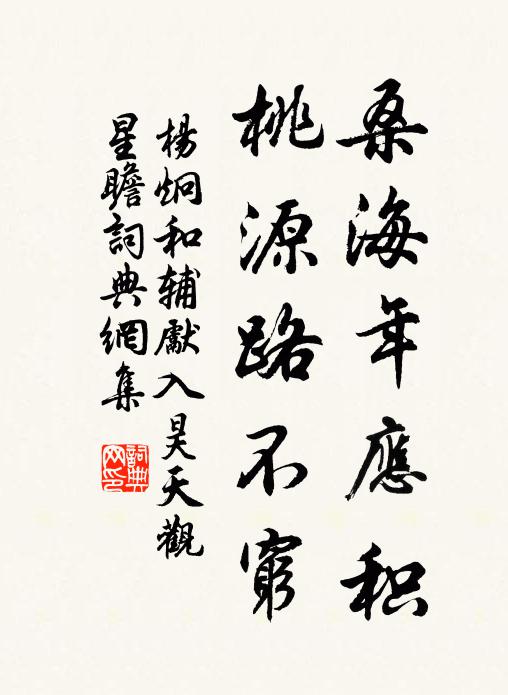 桑海年應积
桃源路不窮
楊炯和輔獻入昊天觀
星瞻詞典網集
詞典
网印